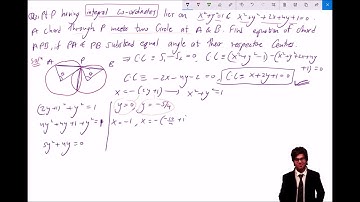 Qu: Pt P having integral co-ordinates lies on x²+y²=1 & x²+y²+2x+4y+1=0.
A chord through P meets two Circle at A & B. Find equation of chord
APB, if PA & PB subtend equal angle at their respective Centre.
Solⁿ A P B ⇒ CC = S₁-S₂=0 ⇒ CC = (x²+y²-1)-(x²+y²+2x+4y+1)=0
CC ≡ -2x-4y-2=0, CC ≡ x+2y+1=0
x = -(2y+1) → x²+y²=1
(2y+1)²+y²=1
4y²+4y+1+y²=1
5y²+4y=0
y=0, y=-4/5
x=-1, x=-(-8/5+1